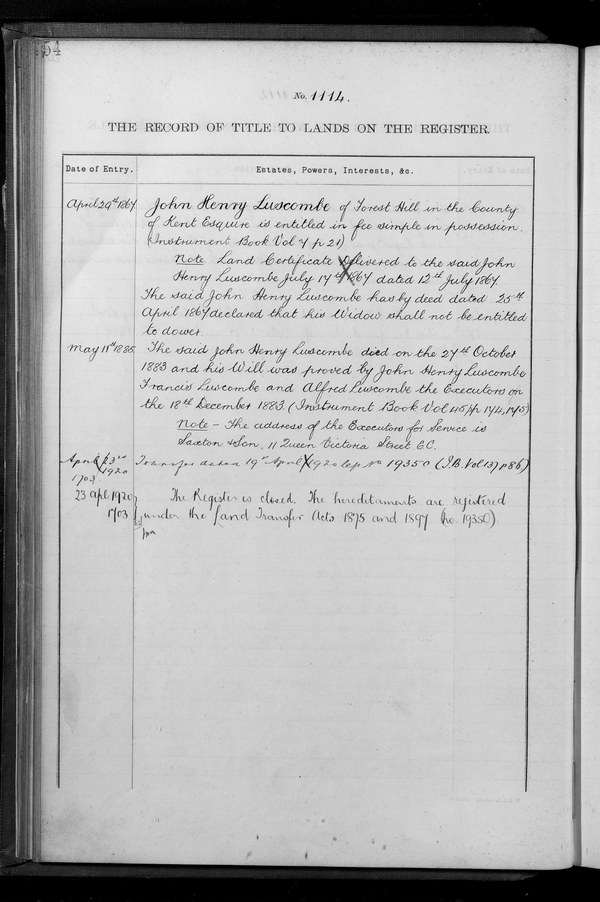 54
No. 1114.
THE RECORD OF TITLE TO LANDS ON THE REGISTER.
Date of Entry. Estates, Powers, Interests, &c.
April 29th 1867 John Henry Luscombe of Forest Hill in the County
of Kent Esquire is entitled in fee simple in possession.
(Instrument Book Vol 7 p 21)
Note Land Certificate delivered to the said John
Henry Luscombe July 17th 1867 dated 12th July 1867
The said John Henry Luscombe has by deed dated 25th
April 1867 declared that his Widow shall not be entitled
to dower.
May 11th 1885 The said John Henry Luscombe died on the 27th October
1883 and his Will was proved by John Henry Luscombe
Francis Luscombe and Alfred Luscombe the Executors on
the 18th December 1883. (Instrument Book Vol 45 pp 144, 145)
Note – The address of the Executors for Service is
Saxton & Son, 11 Queen Victoria Street E.C.
April 23rd 1920 Transfer dated 19th April 1920 No 19350 (I.B. Vol 137 p 86)
1703
23 Apl 1920 The Register is closed. The hereditaments are registered
1703 under the Land Transfer Acts 1875 and 1897 (no. 19350)